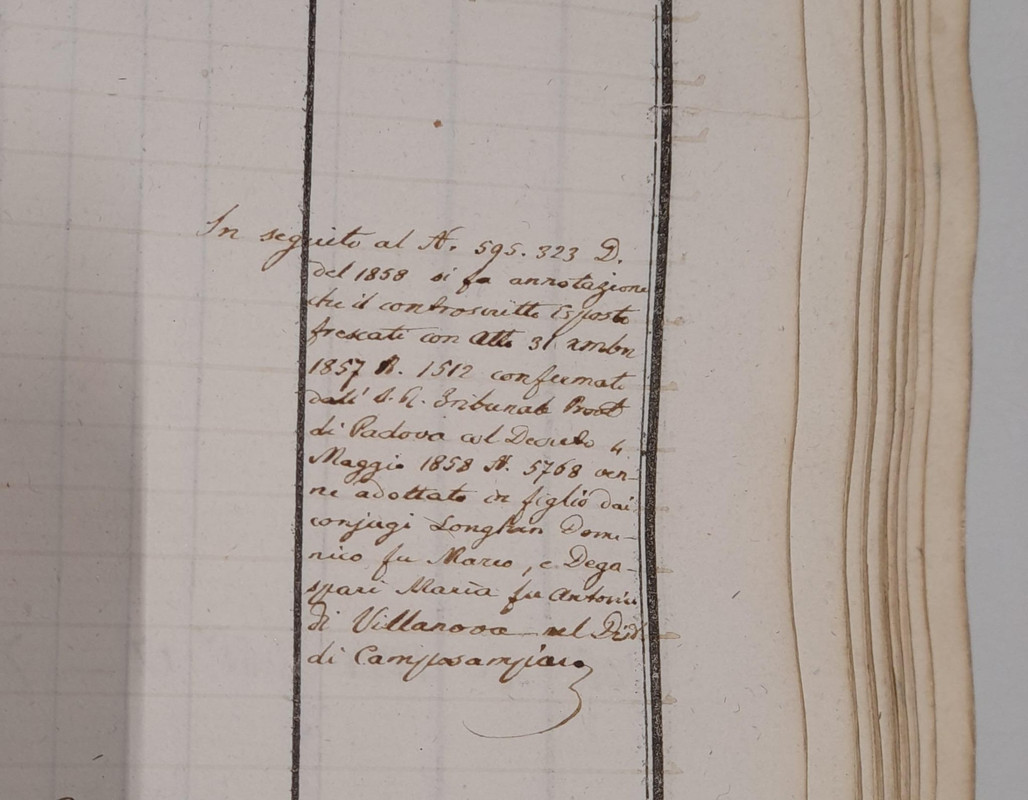 In seguito al N. 595.323 D.
del 1858 si fa annotazione
che il controscritto Esposto
frescati con Atto 31 xmbre
1857 N. 1512 confermato
dall' I. R. Tribunale Prov
di Padova col Decreto 4
Maggio 1858 N. 5768 ven-
ne adottato in figlio dai
conjugi Longhin Dome-
nico fu Marco, e Dega-
spari Maria fu Antonio
di Villanova nel Dist
di Camposampiero